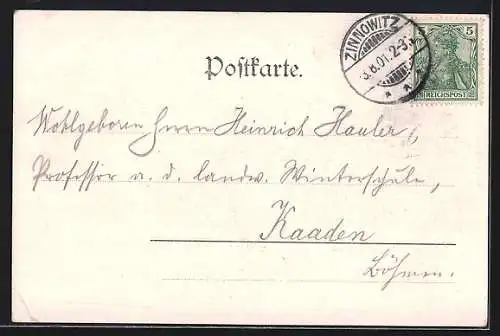 ZINNOWITZ
3.8.01. 2-3
5
REICHSPOST
Postkarte.
Wohlgeboren Herrn Heinrich Hauler,
Professor a. d. landw. Winterschule,
Kaaden
Böhmen.